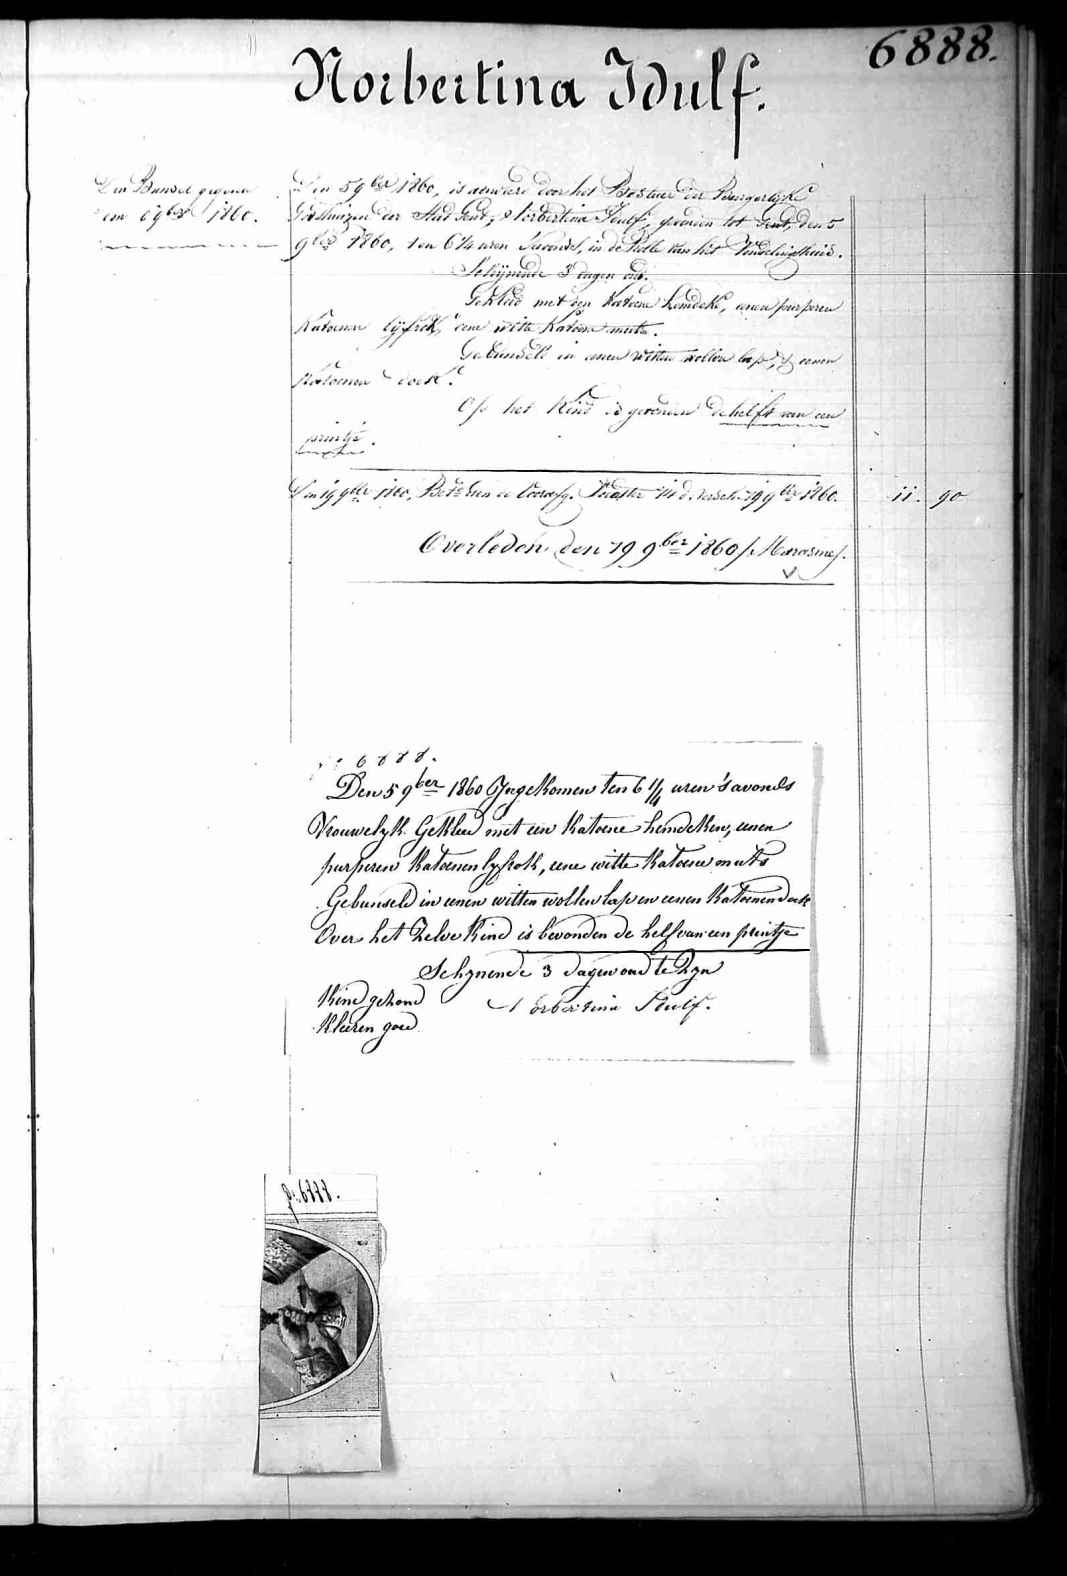 6888.
Norbertina Idulf.
Den Bunsel gegeven
den 6 9ber 1860.
Den 5 9ber 1860, is aenveerd door het Bestuur der Burgerlyke
Godshuizen der Stad Gent, Norbertina Idulf, gevonden tot Gent, den 5
9ber 1860, ten 6 1/4 uren 's avonds, in de Rolle van het Vondelingshuis.
Schynende 3 dagen oud.
Gekleed met een katoene hemdeke, eenen purperen
Katoenen lyfrok, eene witte Katoene muts.
Gebunseld in eenen witten wollen lap, & eenen
Katoenen doek.
Op het Kind is gevonden de helft van een
printje.
Den 19 9ber 1860, 14 d. 19 9ber 1860. 11. 90
Overleden den 19 9ber 1860 /Marasme/.
No 6888.
Den 5 9ber 1860 Ingekomen ten 6 1/4 uren 's avonds
Vrouwelyk. Gekleed met een Katoene hemdeken, eenen
purperen Katoenen lyfrok, eene witte Katoene muts
Gebunseld in eenen witten wollen lap en eenen Katoenen doek
Over het Zelve Kind is bevonden de helf van een printje
Schynende 3 dagen oud te Zyn
Kind gezond Norbertina Idulf.
Kleeren goed
No 6888.